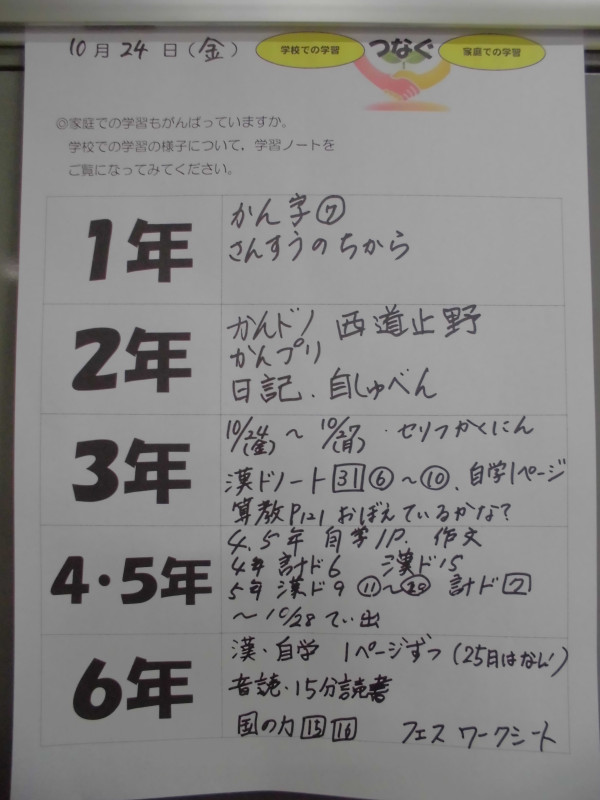 10月24日(金)
学校での学習 つなぐ 家庭での学習
◎家庭での学習もがんばっていますか。
学校での学習の様子について、学習ノートを
ご覧になってみてください。
1年
かん字⑦
さんすうのちから
2年
かんドノ 西道止野
かんプリ
日記、自しゅべん
3年
10/24(金)〜10/27(月)・セリフかくにん
漢ドノート31⑥〜⑩、自学1ページ
算教P121おぼえているかな?
4・5年
4.5年 自学1P. 作文
4年 計ド6 漢ド15
5年 漢ド9 ⑪〜⑳ 計ド7
〜10/28 てい出
6年
漢・自学 1ページずつ(25日はなし!)
音読・15分読書
国の力 15 16 フェス ワークシート